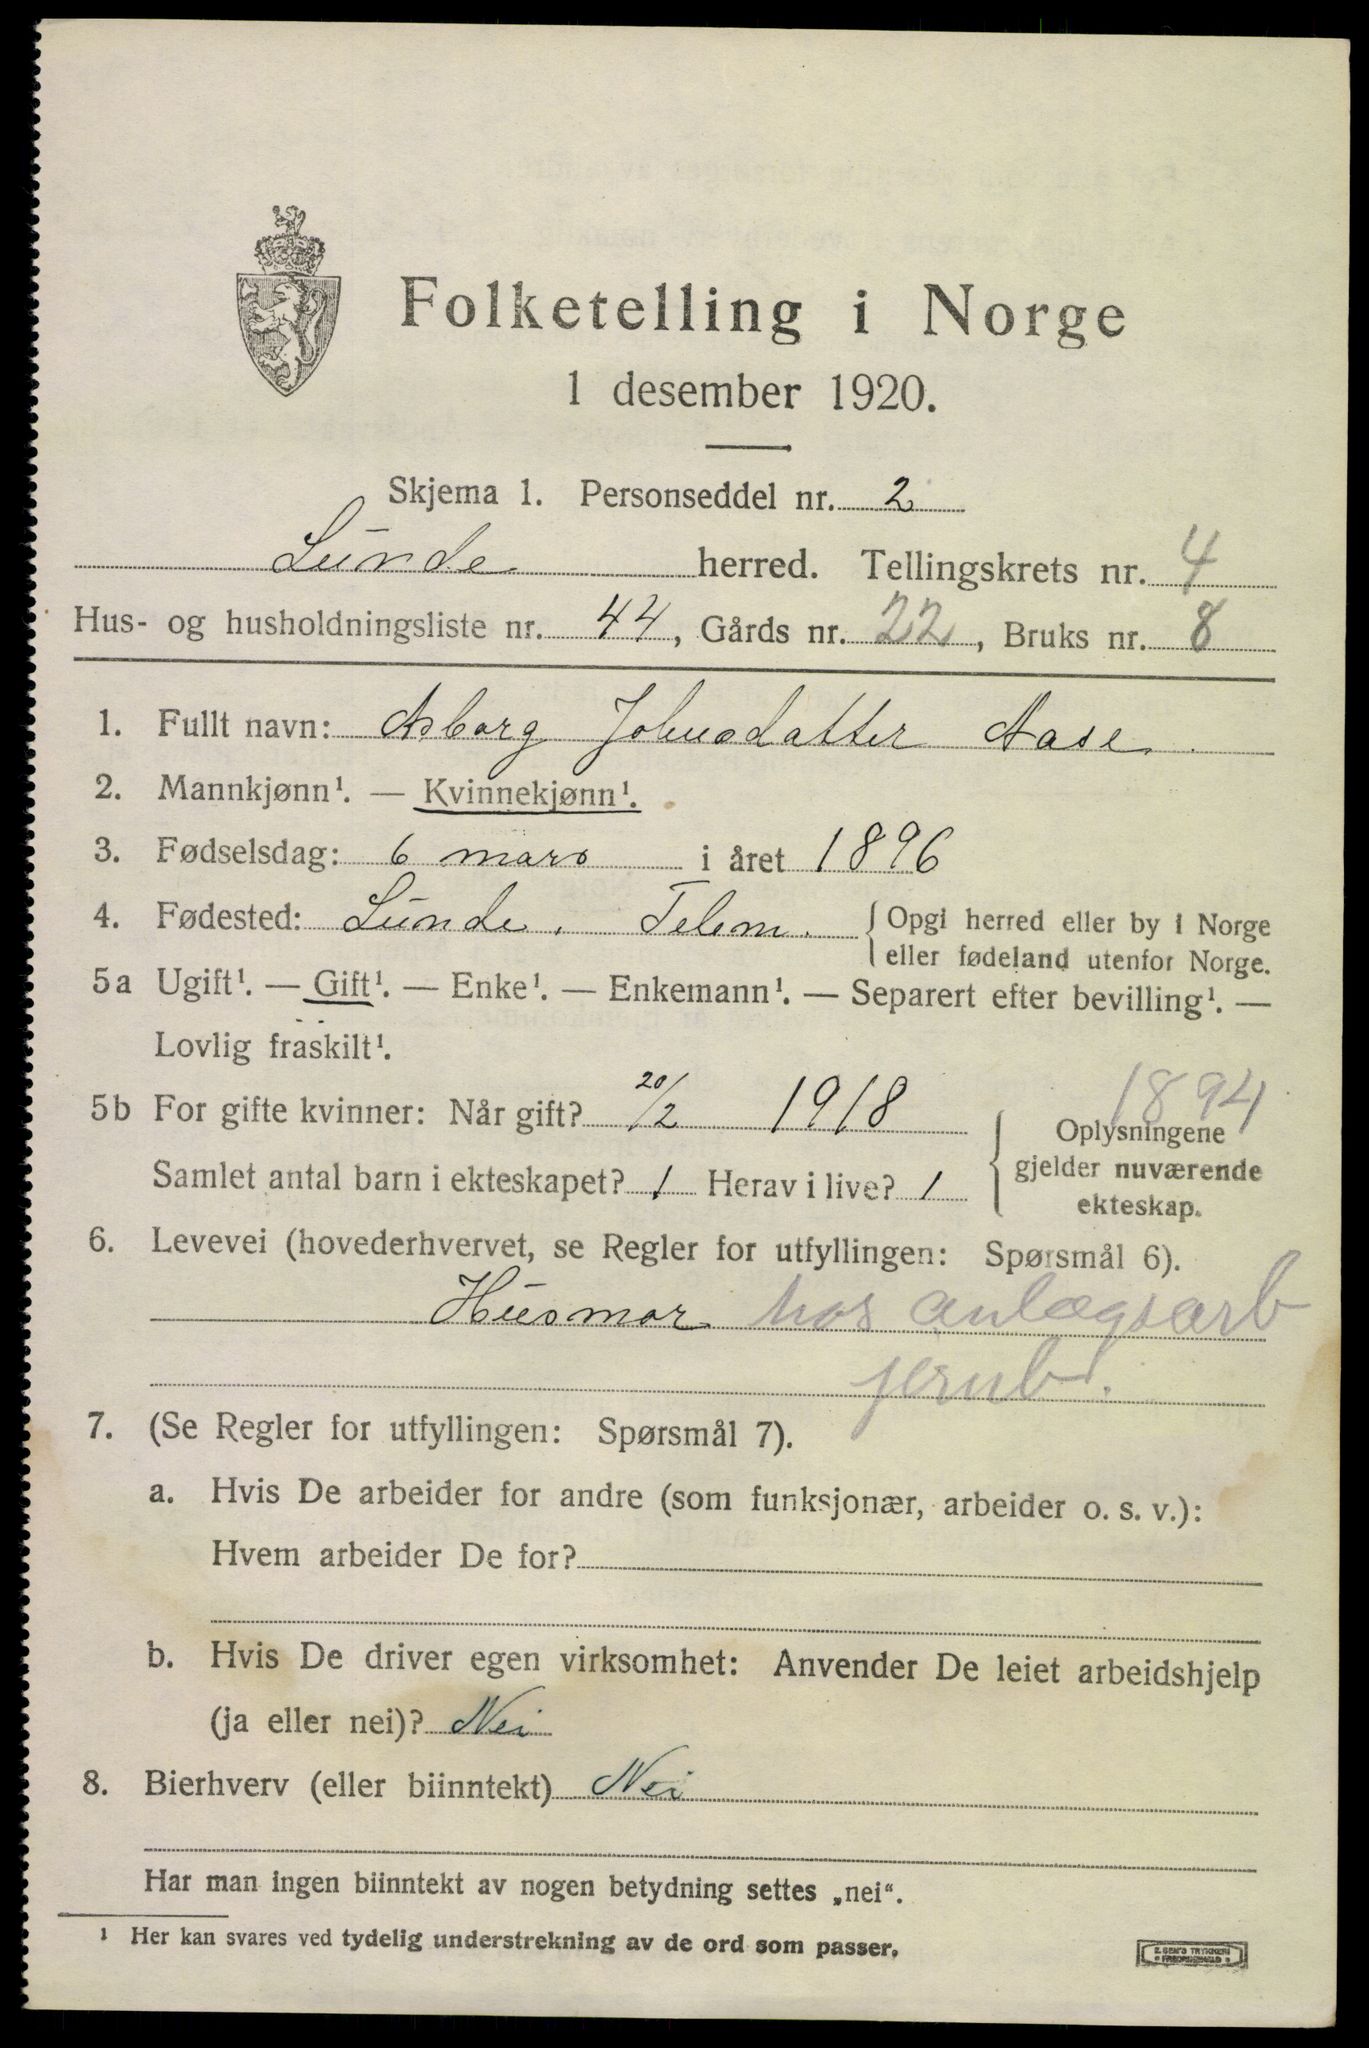 Folketelling i Norge
1 desember 1920.
Skjema 1. Personseddel nr. 2
Lunde herred. Tellingskrets nr. 4
Hus- og husholdningsliste nr. 44, Gårds nr. 22, Bruks nr. 8
1. Fullt navn: Asborg Johnsdatter Aase.
2. Mannkjønn¹. — Kvinnekjønn¹.
3. Fødselsdag: 6 mars i året 1896
4. Fødested: Lunde. Telem. { Opgi herred eller by i Norge
eller fødeland utenfor Norge.
5a Ugift¹. — Gift¹. — Enke¹. — Enkemann¹. — Separert efter bevilling¹. —
Lovlig fraskilt¹.
1894
5b For gifte kvinner: Når gift? 20/2 1918 { Oplysningene
Samlet antal barn i ekteskapet? 1 Herav i live? 1 gjelder nuværende
ekteskap.
6. Levevei (hovederhvervet, se Regler for utfyllingen: Spørsmål 6).
Husmor hos anlægsarb
jernb.
7. (Se Regler for utfyllingen: Spørsmål 7).
a. Hvis De arbeider for andre (som funksjonær, arbeider o. s. v.):
Hvem arbeider De for?
b. Hvis De driver egen virksomhet: Anvender De leiet arbeidshjelp
(ja eller nei)? Nei
8. Bierhverv (eller biinntekt) Nei
Har man ingen biinntekt av nogen betydning settes „nei“.
¹ Her kan svares ved tydelig understrekning av de ord som passer.